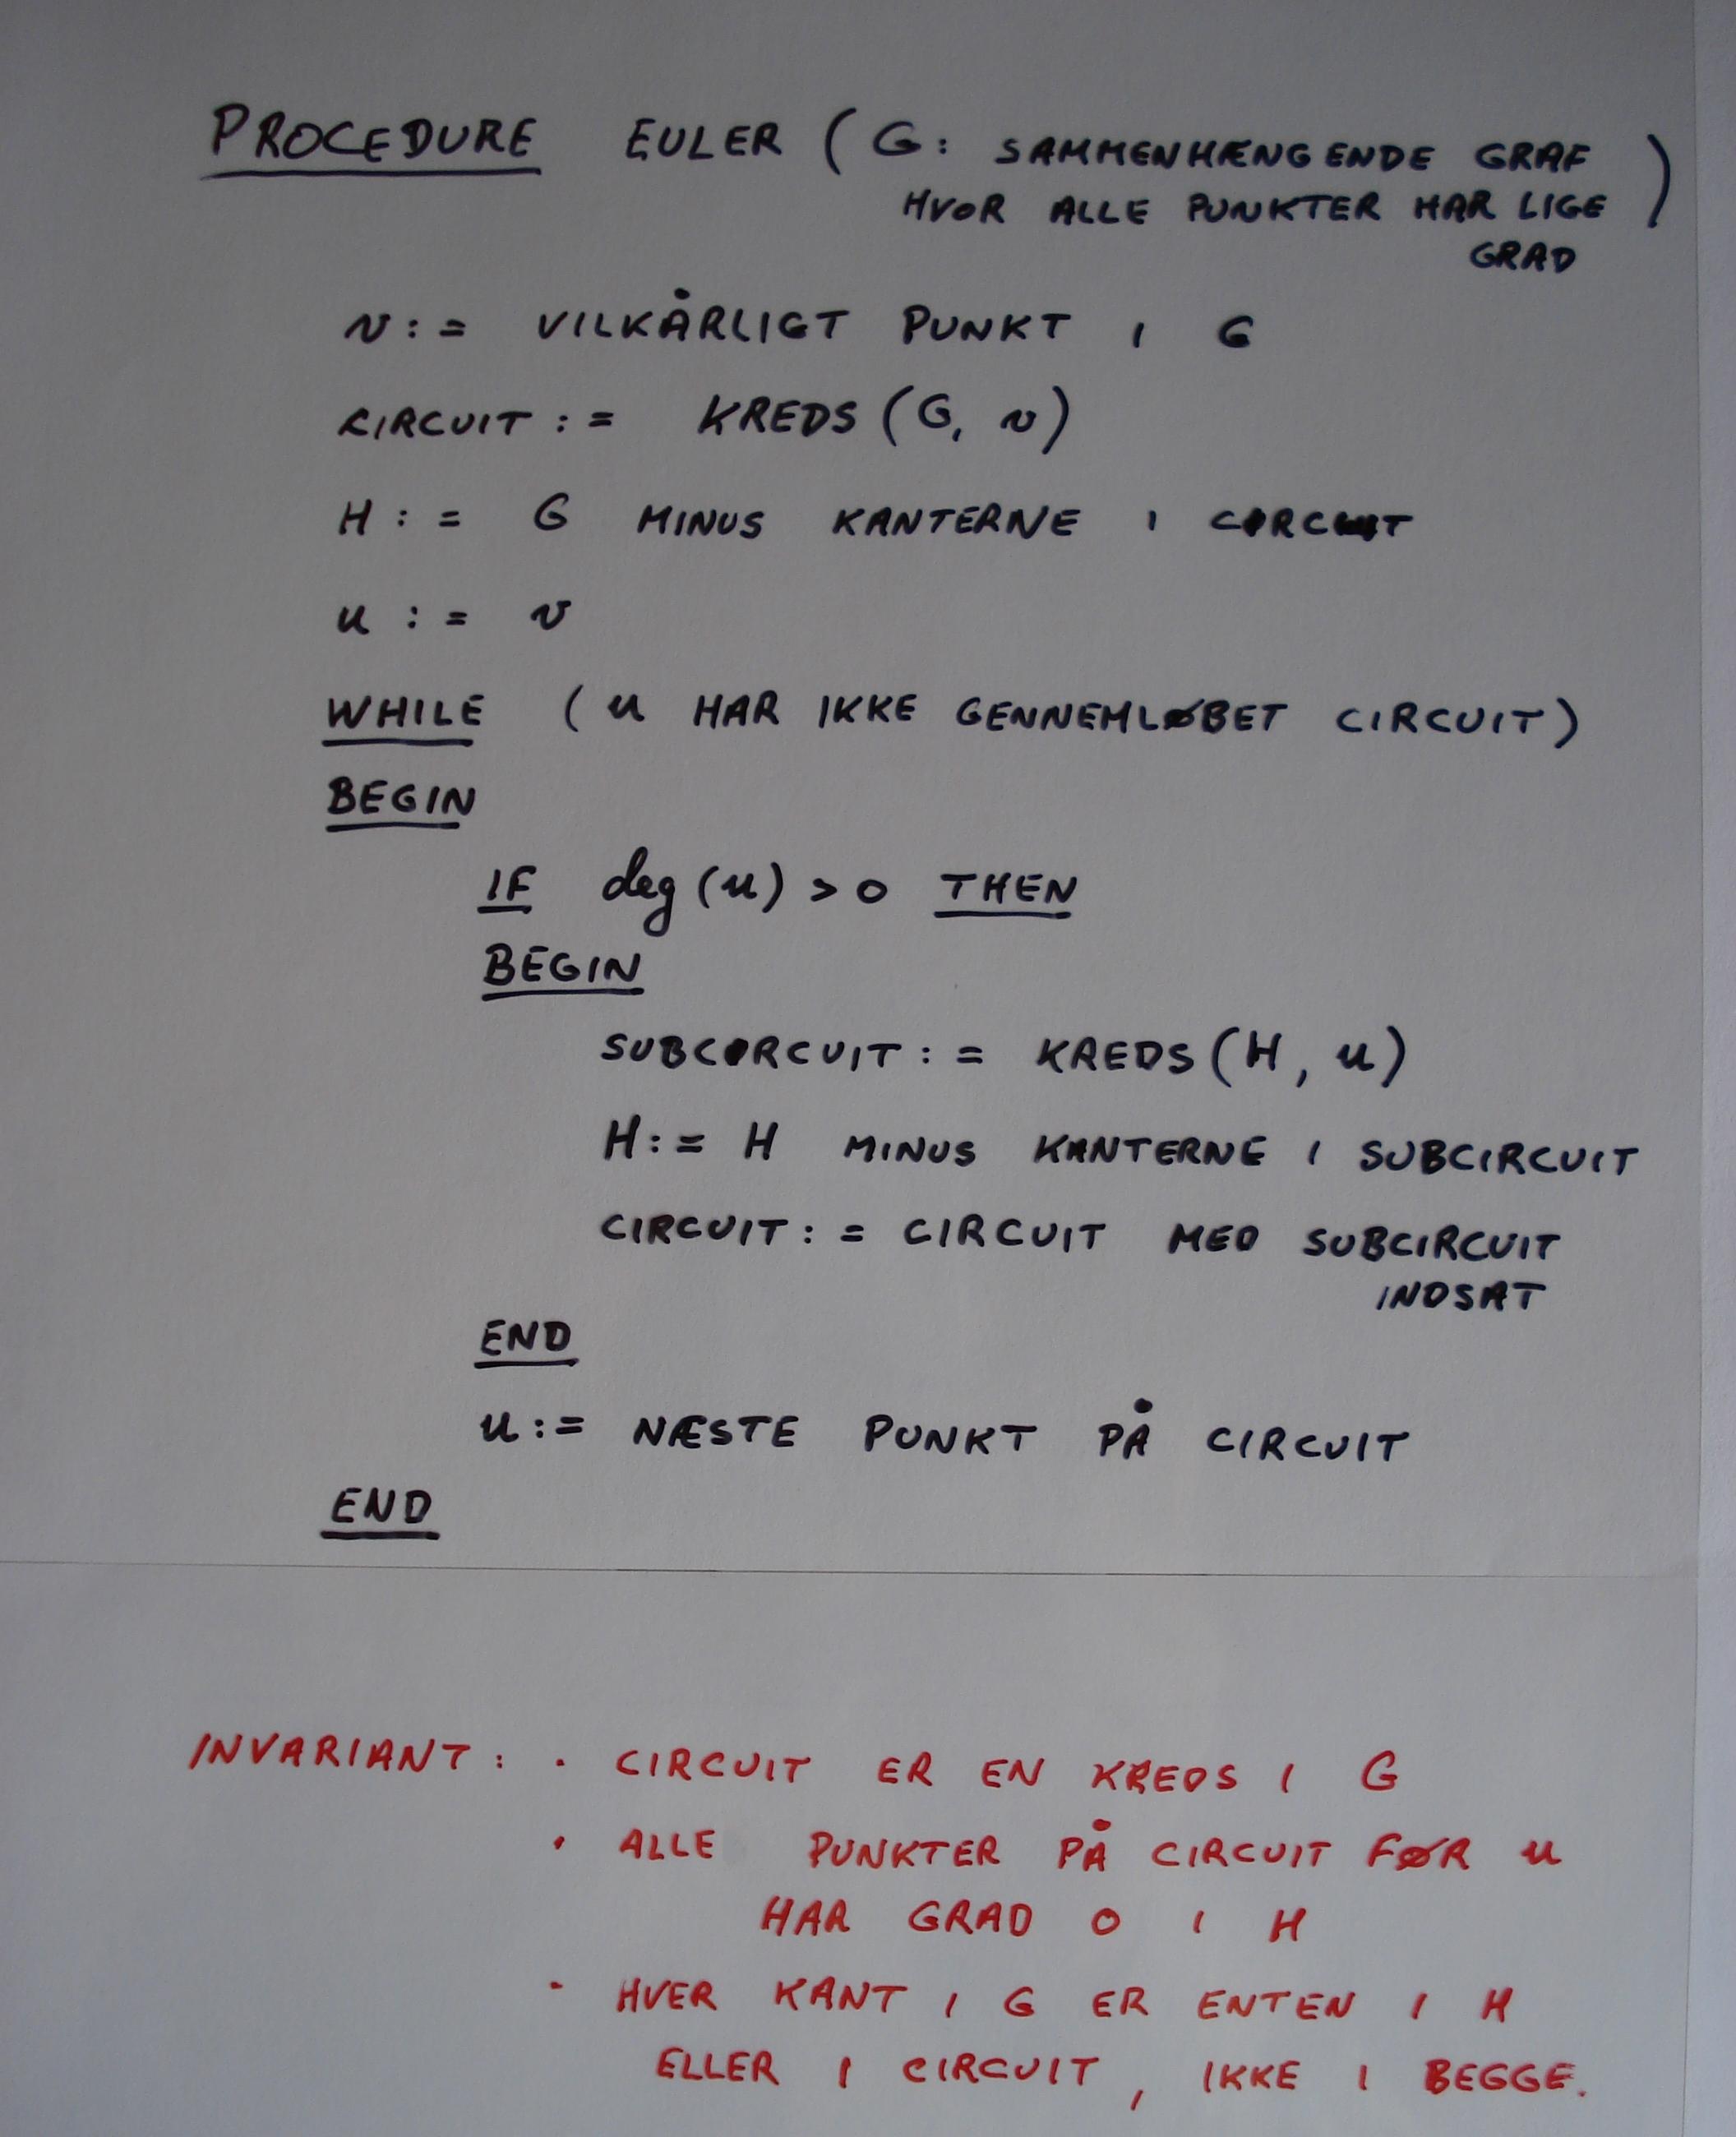 PROCEDURE EULER (G: SAMMENHÆNGENDE GRAF
HVOR ALLE PUNKTER HAR LIGE )
GRAD
v := VILKÅRLIGT PUNKT I G
CIRCUIT := KREDS (G, v)
H := G MINUS KANTERNE I CIRCUIT
u := v
WHILE (u HAR IKKE GENNEMLØBET CIRCUIT)
BEGIN
IF deg(u) > 0 THEN
BEGIN
SUBCIRCUIT := KREDS (H, u)
H := H MINUS KANTERNE I SUBCIRCUIT
CIRCUIT := CIRCUIT MED SUBCIRCUIT
INDSAT
END
u := NÆSTE PUNKT PÅ CIRCUIT
END
INVARIANT: · CIRCUIT ER EN KREDS I G
· ALLE PUNKTER PÅ CIRCUIT FØR u
HAR GRAD 0 I H
· HVER KANT I G ER ENTEN I H
ELLER I CIRCUIT, IKKE I BEGGE.